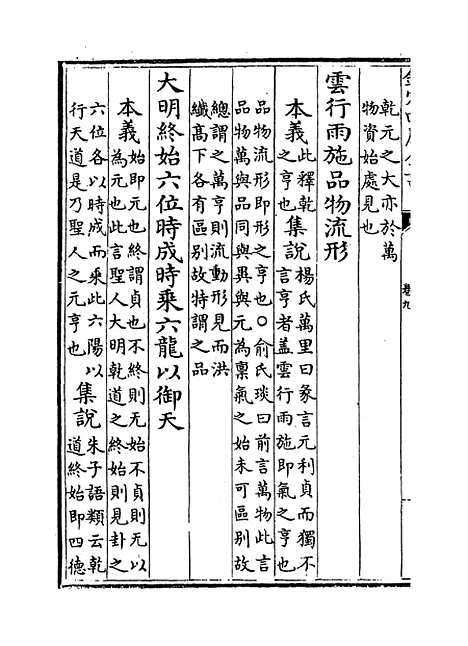 卷九
乾元之大亦於萬
物資始處見也
雲行雨施品物流形
本義
此釋乾
之亨也
集說
楊氏萬里曰彖言元利貞而獨不
言亨者蓋雲行雨施即氣之亨也
品物流形即形之亨也○俞氏琰曰前言萬物此言
品物萬與品同與異與元為稟氣之始未可區別故
總謂之萬亨則流動形見而洪
纖高下各有區別故特謂之品
大明終始六位時成時乘六龍以御天
本義
始即元也終謂貞也不終則无始不貞則无以
為元也此言聖人大明乾道之終始則見卦之
六位各以時成而乘此六陽以
行天道是乃聖人之元亨也
集說
朱子語類云乾
道終始即四德